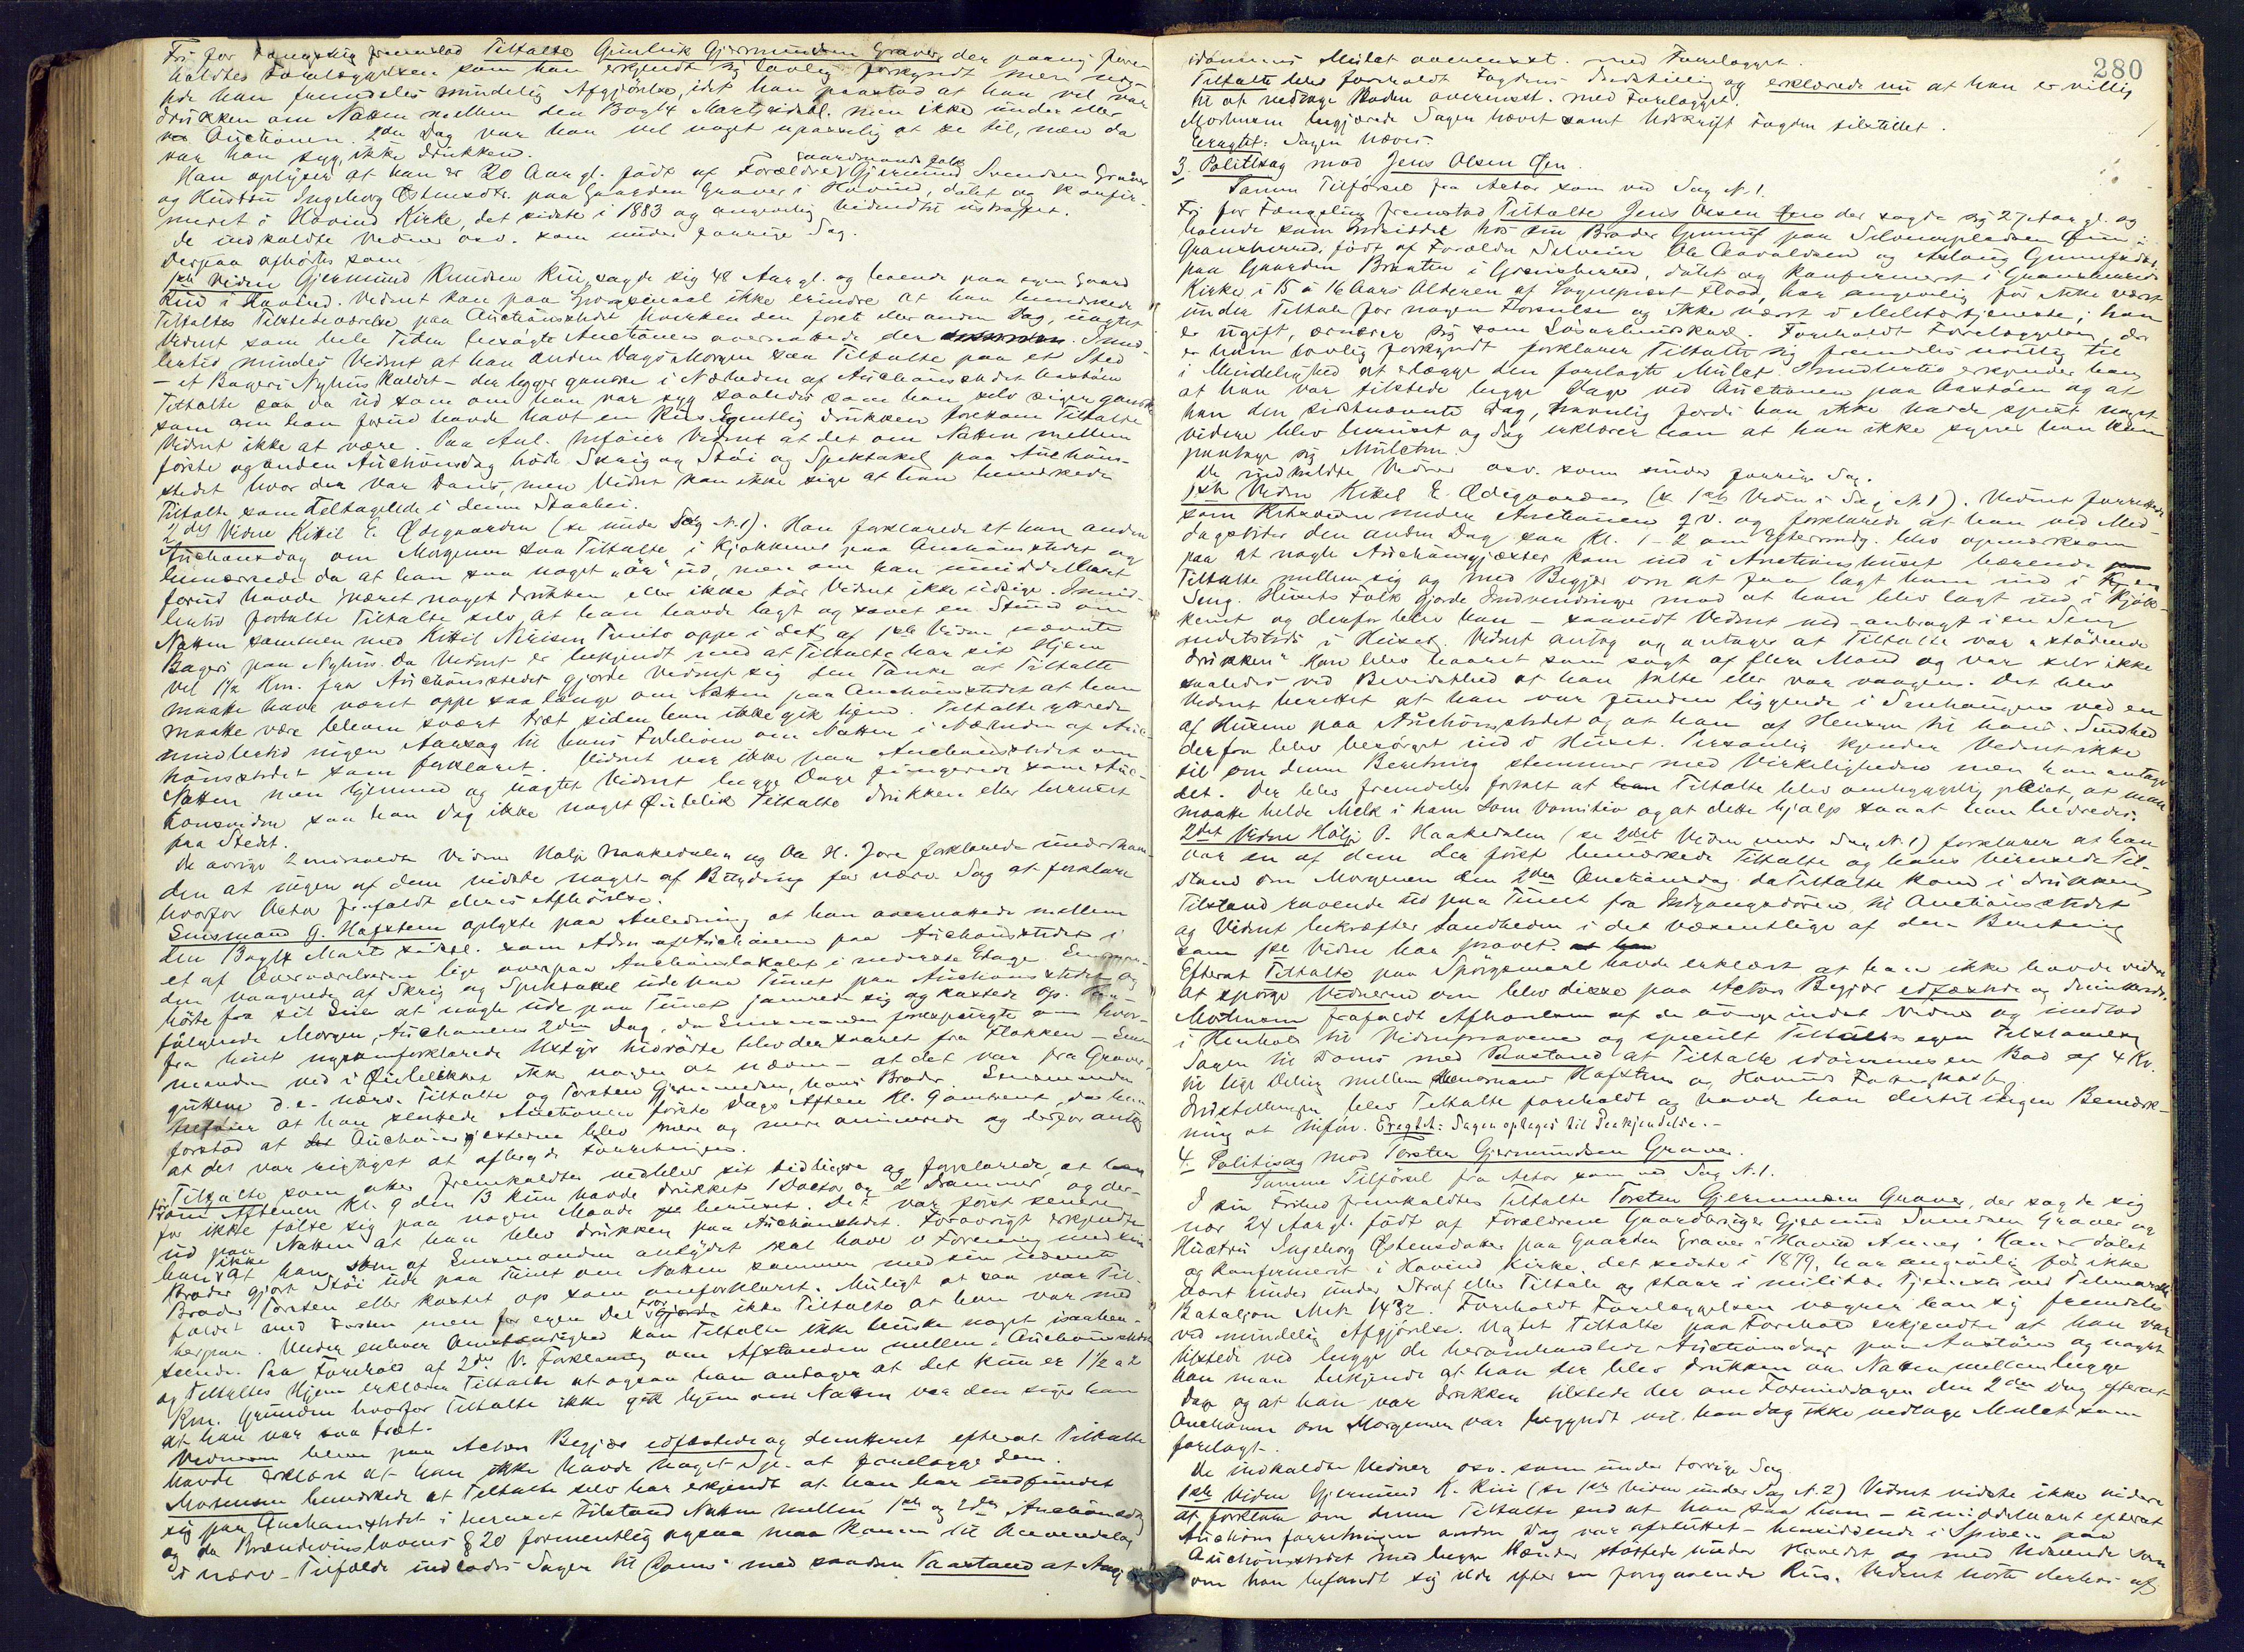 Fri for Fængslig fremstod Tiltalte Gunleik Gjermundsen Graver der paany fore-
holdtes Forelæggelsen som han erkjendt sig lovlig forkyndt men næg-
tede han fremdeles mindelig Afgjørelse, idet han paastod at han vel var
drukken om Natten mellem den 13 og 14 Marts sidstl. men ikke under eller
ved Auctionen. 2den Dag var han vel noget upasselig at se til, men da
var han syg, ikke drukken.
Han oplyser at han er 20 Aar gl. født af Forældre Gaardmandsfolk Gjermund Svendsen Graver
og Hustru Ingeborg Østensdtr. paa Gaarden Graver i Hovind, døbt og Konfir-
meret i Hovind Kirke, det sidste i 1883 og angivelig hidindtil ustraffet.
De indkaldte Vidner osv. som under forrige Sag.
Derpaa afhørtes som
1ste Vidne Gjermund Knudsen Rui, sagde sig 48 Aar gl. og boende paa egen Gaard
Rui i Hovind. Vidnet kan paa Spørgsmaal ikke erindre at han bemærkede
Tiltaltes Tilstedeværelse paa Auctionsstedet hverken den første eller anden Dag, uagtet
Vidnet som hele Tiden besøgte Auctionen overnattede der. Imid-
lertid mindes Vidnet at han anden Dags Morgen saa Tiltalte paa et Sted
– et Bageri Nyhus kaldet – der ligger ganske i Nærheden af Auctionsstedet Aastøen
Tiltalte saa da ud som om han var syg saaledes som han selv siger ganske
som om han forud havde havt en Rus. Egentlig drukken forekom Tiltalte
Vidnet ikke at være. Paa Anl. tilføier Vidnet at det om Natten mellem
første og anden Auctionsdag hørte Skrig og Støi og Spektakel paa Auctions-
stedet hvor der var Dans, men Vidnet kan ikke sige at han bemærkede
Tiltalte som deltagende i denne Staahei.
2det Vidne Kittil E. Ødegaarden (se under Sag N. 1). Han forklarede at han anden
Auctionsdag om Morgenen saa Tiltalte i Kjøkkenet paa Auctionsstedet og
bemærkede da at han saa noget "ør" ud, men om han umiddelbart
forud havde været noget drukken eller ikke tør Vidnet ikke udsige. Imid-
lertid fortalte Tiltalte selv at han havde lagt og sovet en Stund om
Natten sammen med Kittil Nirisen Tveito oppe i det af 1ste Vidne nævnte
Bageri paa Nyhus. Da Vidnet er bekjendt med at Tiltalte har sit Hjem
vel 1½ Km. fra Auctionsstedet gjorde Vidnet sig den Tanke at Tiltalte
maatte have været oppe saa længe om Natten paa Auctionsstedet at han
maatte være bleven svært træt siden han ikke gik hjem. Tiltalte ytrede
imidlertid ingen Aarsag til hans Forbliven om Natten i Nærheden af Auc-
tionsstedet som forklaret. Vidnet var ikke paa Auctionsstedet om
Natten men hjemme og uagtet Vidnet begge Dage fungerede som Auc-
tionsvidne saa han dog ikke noget Øieblik Tiltalte drukken eller beruset
paa Stedet.
De øvrige 2 indkaldte Vidner Halje Haakedalen og Ole H. Jore forklarede underhaan-
den at ingen af dem vidste noget af Betydning for nærv. Sag at forklare
hvorfor Actor frafaldt deres Afhørelse.
Lensmand G. Hafsten oplyste paa Anledning at han overnattede mellem
den 13 og 14 Marts sidstl. som Adm. af Auctionen paa Auctionsstedet i
et af Overværelserne lige overpaa Auctionslokalet i nederste Etage.
den vaagnede af Skrig og Spektakel ude paa Tunet paa Auctionsstedet og
hørte fra sit Leie at nogle ude paa Tunet jamrede sig og kastede op. Paa-
følgende Morgen, Auctionens 2den Dag, da Lensmanden forespurgte om hvor-
fra hint nysomforklarede Ustyr hidrørte blev der svaret fra Flokken – Lens-
manden ved i Øieblikket ikke nogen at nævne – at det var fra Graver-
guttene d.e. nærv. Tiltalte og Torsten Gjermundsen, hans Broder. Lensmanden
tilføier at han sluttede Auctionen første Dags Aften Kl. 9 omtrent, da han
forstod at Auctionsgjesterne blev mere og mere animerede og derfor antog
at det var rigtigst at afbryde Forretningen.
Tiltalte som atter fremkaldtes vedblev sit Sidstsigende og forklarede at han
før om Aftenen Kl. 9 den 13 kun havde drukket 1 Doctor og 2 Drammer og der-
for ikke følte sig paa nogen Maade beruset. Det var først senere
ud paa Natten at han blev drukken paa Auctionsstedet. Forøvrigt erkjendte
han ikke at han som af Lensmanden antydet skal have i Forening med sin
Broder gjort Støi ude paa Tunet om Natten sammen med sin nævnte
Broder Torsten eller kastet op som omforklaret. Muligt at saa var Til-
fældet med Torsten men for egen Del tror ikke Tiltalte at han var med
herpaa. Under enhver Omstændighed kan Tiltalte ikke huske noget isaahen-
seende. Paa Forehold af 2det V. Forklaring om Afstanden mellem Auctionsstedet
og Tiltaltes Hjem erklærer Tiltalte at ogsaa han antager at det kun er 1½ a 2
Km. Grunden hvorfor Tiltalte ikke gik hjem om Natten var den siger han
at han var saa træt.
Vidnerne bleve paa Actors Begjær edfæstede og demitteret efterat Tiltalte
havde erklært at han ikke havde noget Spl. at forelægge dem.
Mortensen bemærkede at Tiltalte selv har erkjendt at han har indfundet
sig paa Auctionsstedet i beruset Tilstand Natten mellem 1ste og 2den Auctionsdag
og da Brændevinslovens § 20 formentlig ogsaa maa komme til Anvendelse
i nærv. Tilfælde indlodes Sagen til Doms med saadan Paastand at Ang.
280
idømmes Mulct overensst. med Forelægget.
Tiltalte blev foreholdt Fogdens Indstilling og erklærede nu at han er villig
til at vedtage Boden overensst. med Forelægget.
Mortensen begjærede Sagen hævet samt Udskrift Fogden tilstillet.
Eragtet: Sagen hæves.
3. Politisag mod Jens Olsen Øen.
Samme Tilførsel fra Actor som ved Sag N. 1.
Fri for Fængsling fremstod Tiltalte Jens Olsen Øen der sagde sig 27 Aar gl. og
boende som Inderst hos sin Broder Gunuf paa Selveierpladsen Øen i
Gransherred, født af Forældre Selveier Ole Aavaldsen og Aslaug Gunufsdtr.
paa Gaarden Braaten i Gransherred, døbt og konfirmeret i Gransherreds
Kirke i 15 a 16 Aars Alderen af Sogneprest Flood, har angivelig før ikke været
under Tiltale for nogen Forseelse og ikke været i Militærtjeneste; han
er ugift, ernærer sig som Løsarbeidskarl. Foreholdt Forelæggelsen, der
er ham lovlig forkyndt forklarer Tiltalte sig fremdeles uvillig til
i Mindelighed at erlægge den forelagte Mulct. Imidlertid erkjender han
at han var tilstede begge Dage ved Auctionen paa Aastøen og at
han den sidstnævnte Dag, navnlig fordi han ikke havde spist noget
videre blev beruset og dog erklærer han at han ikke synes han kan
paatage sig Mulcten.
De indkaldte Vidner osv. som under forrige Sag.
1ste Vidne Kittil E. Ødegaarden (se 1ste Vidne i Sag N. 1). Vidnet forrettede
som Retsvidne under Auctionen q.v. og forklarede at han ved Mid-
dagstider den anden Dag saa Kl. 1–2 om Eftermdg. blev opmærksom
paa at nogle Auctionsgjæster kom ind i Auctionshuset bærende
Tiltalte mellem sig og med Begjær om at faa lagt ham ind i en
Seng. Husets Folk gjorde Indvendinger mod at han blev lagt ind i Kjøk-
kenet og derfor blev han – saavidt Vidnet ved – anbragt i en Seng
andetsteds i Huset. Vidnet antog og antager at Tiltalte var "stødende
drukken". Han blev baaret som sagt af flere Mænd og var selv ikke
saaledes ved Bevidsthed at han talte eller var vaagen. Det blev
Vidnet berettet at han var funden liggende i Snehaugen ved en
af Husene paa Auctionsstedet og at han af Hensyn til hans Sundhed
derfra blev besørget ind i Huset. Personlig kjender Vidnet ikke
til om denne Beretning stemmer med Virkeligheden men han antager
det. Der blev fremdeles fortalt at Tiltalte blev omhyggelig pleiet, at man
maatte helde Melk i ham som Vomitiv og at dette hjalp saaat han bedredes.
2det Vidne Halje P. Haakedalen (se 2det Vidne under Sag N. 1) forklarer at han
var en af dem der først bemærkede Tiltalte og hans berusede Til-
stand om Morgenen den 2den Auctionsdag da Tiltalte kom i drukken
Tilstand ravende ud paa Tunet fra Indgangsdøren til Auctionsstedet
og Vidnet bekræfter Sandheden i det væsentlige af den Beretning
som 1ste Vidne har provet.
Efterat Tiltalte paa Spørgsmaal havde erklært at han ikke havde videre
at spørge Vidnerne om blev disse paa Actors Begjær edfæstede og demitterede.
Mortensen frafaldt Afhørelsen af de øvrige indst. Vidner og indlod
i Henhold til Vidneprovene og specielt Tiltaltes egen Tilstaaelse
Sagen til Doms med Paastand at Tiltalte idømmes en Bod af 4 Kr.
til lige Deling mellem Lensmand Hafsten og Hovinds Fattigkasse.
Indstillingen blev Tiltalte foreholdt og havde han dertil ingen Bemærk-
ning at tilføie. Eragtet: Sagen optages til Paakjendelse. –
4. Politisag mod Torsten Gjermundsen Graver.
Samme Tilførsel fra Actor som ved Sag N. 1.
I sin Frihed fremkaldtes Tiltalte Torsten Gjermundsen Graver, der sagde sig
nær 24 Aar gl. født af Forældrene Gaardbruger Gjermund Svendsen Graver og
Hustru Ingeborg Østensdatter paa Gaarden Graver i Hovind Annex. Han er døbt
og konfirmeret i Hovind Kirke, det sidste i 1879, har angivelig før ikke
været under Straf eller Tiltale og staar i militær Tjeneste ved Telemarkens
Bataljon Nr. 1432. Foreholdt Forelæggelsen vægrer han sig fremdeles
ved mindelig Afgjørelse. Uagtet Tiltalte paa Forehold erkjendte at han var
tilstede ved begge de heromhandlede Auctionsdage paa Aastøen og uagtet
han maa erkjende at han der blev drukken om Natten mellem begge
Dage og at han var drukken tilstede der om Formiddagen den 2den Dag efterat
Auctionen om Morgenen var begyndt vil han dog ikke vedtage Mulct som
forelagt.
De indkaldte Vidner osv. som under forrige Sag
1ste Vidne Gjermund K. Rui (se 1ste Vidne under Sag N. 2) Vidnet vidste ikke videre
at forklare om denne Tiltalte end at han saa ham – umiddelbart efterat
Auctionsforretningen anden Dag var afsluttet – hensiddende i Spisen paa
Auctionsstedet med begge Hænder støttede under Hovedet og med Udseende som
om han befandt sig ilde efter en foregaaende Rus. Vidnet hørte derhos af